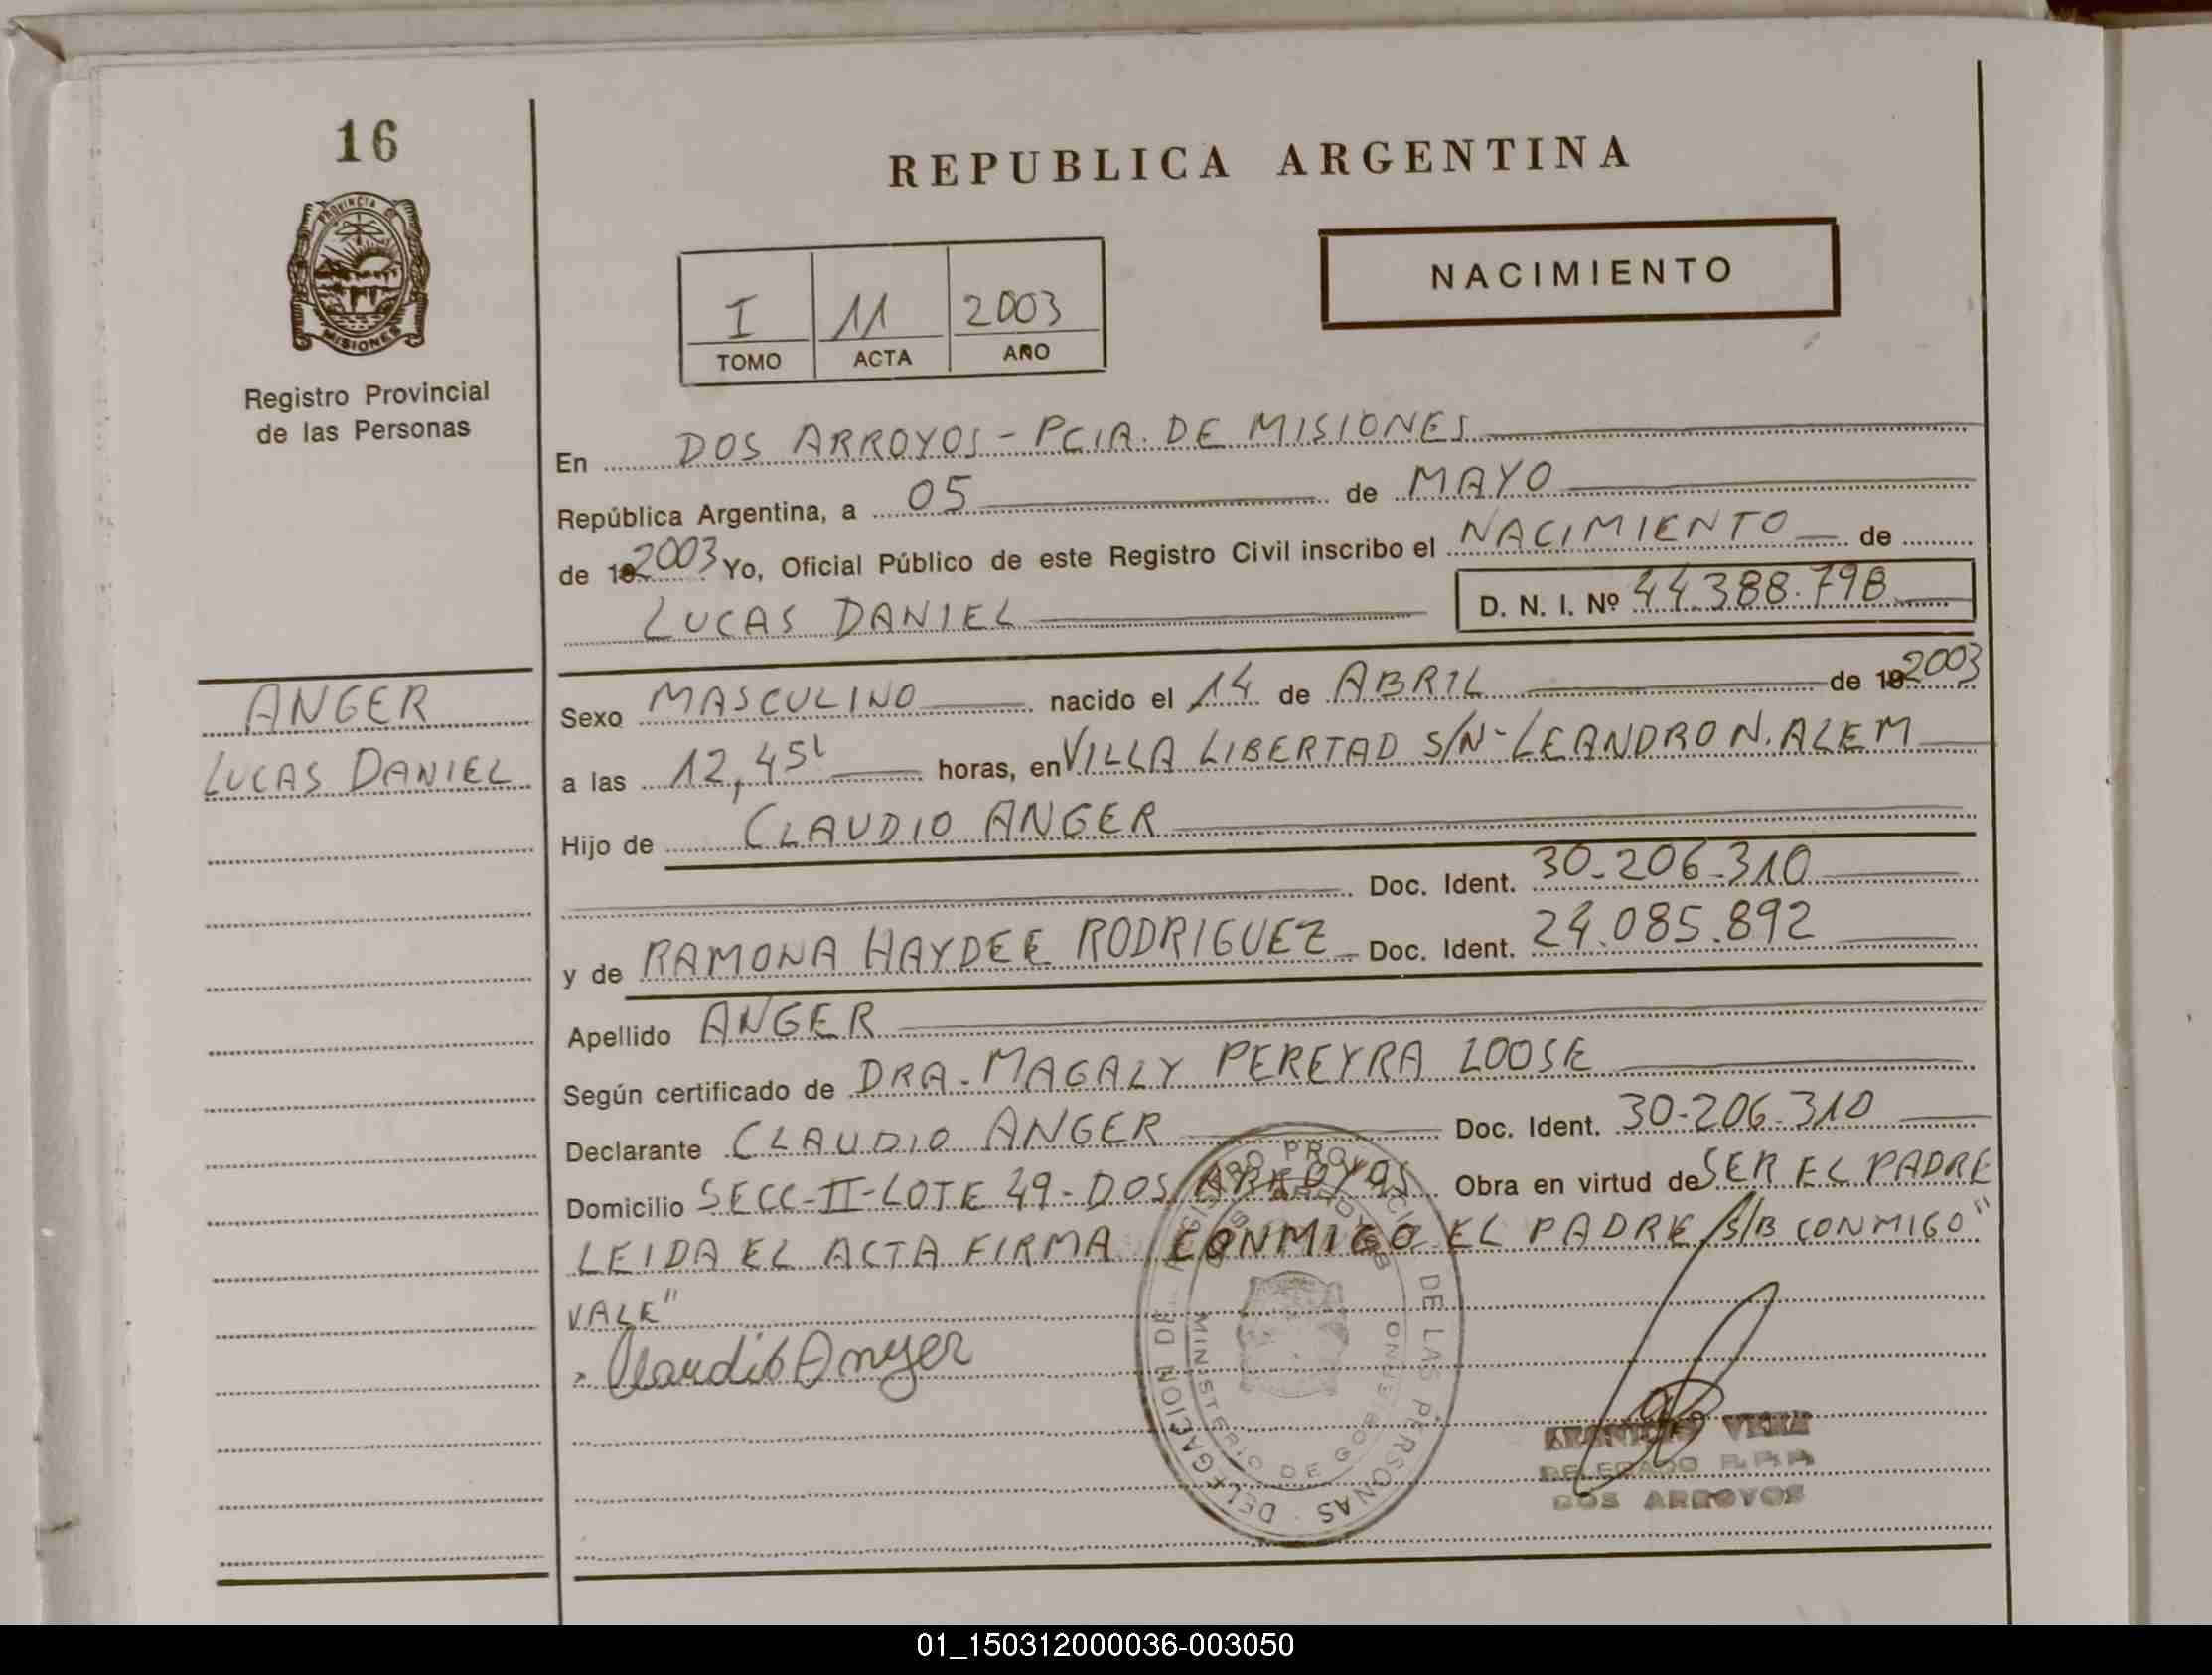 16
REPUBLICA ARGENTINA
PROVINCIA DE
MISIONES
NACIMIENTO
I 11 2003
TOMO ACTA AÑO
Registro Provincial
de las Personas
En DOS ARROYOS - PCIA. DE MISIONES
República Argentina, a 05 de MAYO
de 192003 Yo, Oficial Público de este Registro Civil inscribo el NACIMIENTO de
LUCAS DANIEL D. N. I. Nº 44.388.798
ANGER
LUCAS DANIEL
Sexo MASCULINO nacido el 14 de ABRIL de 192003
a las 12,45 horas, en VILLA LIBERTAD S/N - LEANDRO N. ALEM
Hijo de CLAUDIO ANGER
Doc. Ident. 30.206.310
y de RAMONA HAYDEE RODRIGUEZ Doc. Ident. 24.085.892
Apellido ANGER
Según certificado de DRA. MAGALY PEREYRA LOOSE
Declarante CLAUDIO ANGER Doc. Ident. 30.206.310
Domicilio SECC-II-LOTE 49-DOS ARROYOS Obra en virtud de SER EL PADRE
LEIDA EL ACTA FIRMA CONMIGO EL PADRE S/B CONMIGO"
VALE"
Claudio Anger
REGISTRO PROVINCIAL DE LAS PERSONAS - DELEGACION DE
DOS ARROYOS
MINISTERIO DE GOBIERNO
VIERA
DELEGADO R.P.P.
DOS ARROYOS
01_150312000036-003050